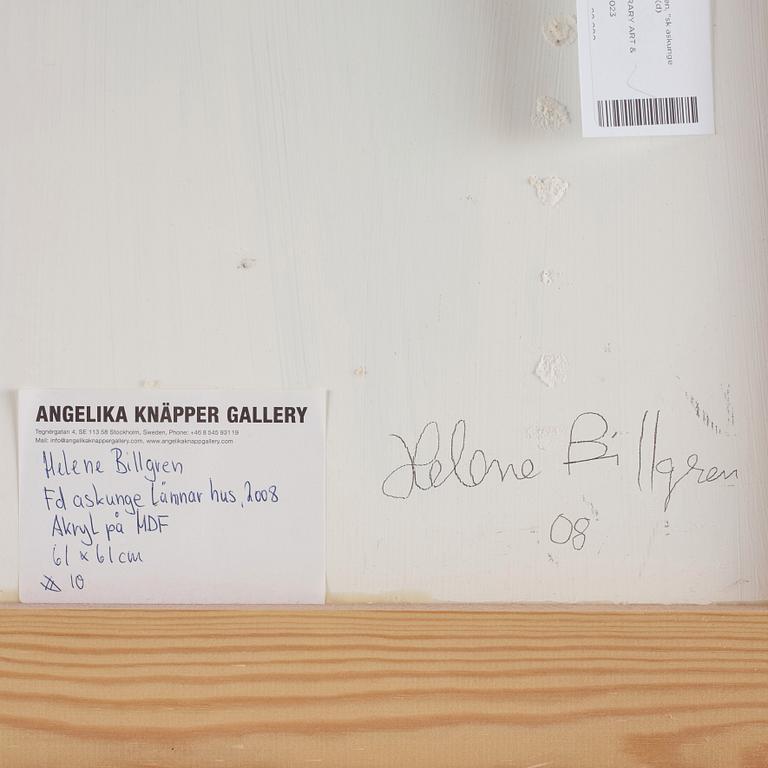 "sk askunge
RARY ART &
023
ANGELIKA KNÄPPER GALLERY
Tegnérgatan 4, SE 113 58 Stockholm, Sweden, Phone: +46 8 545 931 19
Mail: info@angelikaknappergallery.com, www.angelikaknappgallery.com
Helene Billgren
Fd askunge lämnar hus, 2008
Akryl på MDF
61 x 61 cm
10
Helene Billgren
08